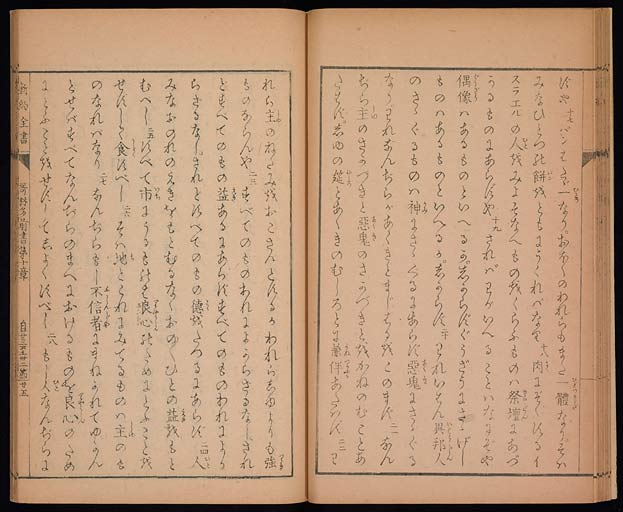 ずや 十七 パンはたゞ一なりおほくのわれらもまた一體なりそは
みなひとつの餅をともにうくればなり 十八 肉によれるイ
スラエルの人をみよそなへものをくらふものハ祭壇にあづ
かるものにあらずや 十九 されバわがいへることハなにぞや
偶像ハあるものといへるか
ものハあるものといへるか 二十 われいはん異邦人
のさゝぐるものハ神にさゝぐるにあらず惡鬼にさゝぐる
なりわれなんぢらがあくきとまじはるをこのまず 二一 なん
ぢら主のさかづきと惡鬼のさかづきとをかねのむことあ
たはず 筵とあくきのむしろとに兼伴あたはず 二二 わ
れら主のねたみをおこさんとするかわれら よりも強
ものならんや 二三 すべてのものわれによからざるなしされ
どもすべてのもの益あるにあらずすべてのものわれによか
らざるなしされどすべてのもの德をたつるにあらず 二四 人
みなおのれのえきをもとむるなくおのおのひとの益をもと
むべし 二五 すべて市にうるものは良心のためにとふことを
せずして食すべし 二六 そハ地とこれにみてるものハ主のも
のなれバなり 二七 なんぢらもし不信者にまねかれてゆかん
とせばすべてなんぢらのまへにおけるものを良心のため
にとふことをせずして すべし 二八 もし人なんぢらに
新約全書 哥林多前書第十章